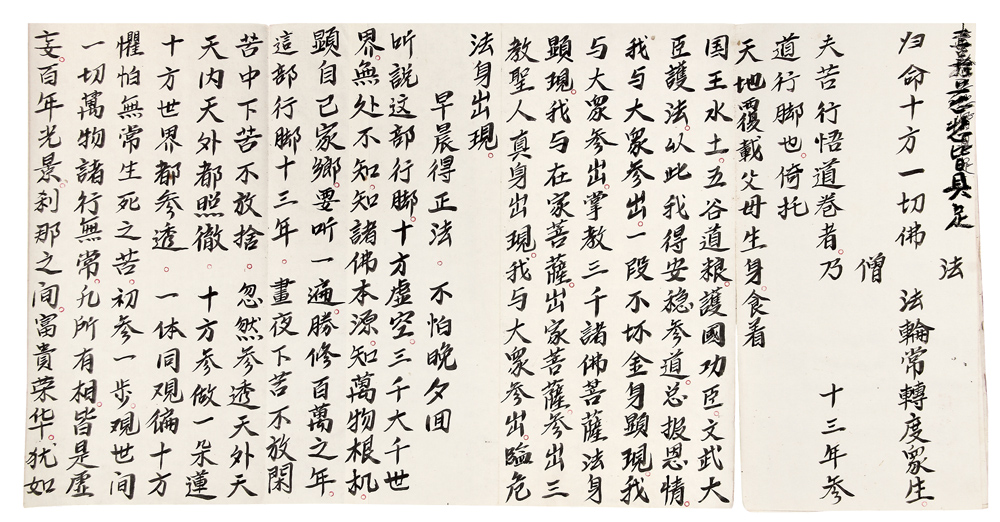 皆具足
法
归命十方一切佛 法輪常轉度衆生。
僧
夫苦行悟道卷者。乃 十三年参
道行脚也。倚托
天地覆載父母生身。食着
国王水土。五谷道粮。護國功臣。文武大
臣護法。以此我得安稳参道。总报恩情。
我与大衆参出。一段不坏金身顕現。我
与大衆参出。掌教三千諸佛菩薩法身
顕現。我与在家菩薩。出家菩薩。参出三
教聖人真身出現。我与大衆参出。臨危
法身出現。
早晨得正法。不怕晚夕回
听説这部行脚。十方虚空三千大千世
界。無处不知。知諸佛本源。知萬物根机。
顕自己家鄉。要听一遍。勝修百萬之年
這部行脚十三年。晝夜下苦不放閑
苦中下苦不放捨。忽然参透天外天
天内天外都照徹。十方参做一朵蓮
十方世界都参透。一体同观徧十方
懼怕無常生死之苦。初参一步。观世间
一切萬物諸行無常。凡所有相。皆是虚
妄。百年光景。刹那之间。富貴荣华。犹如